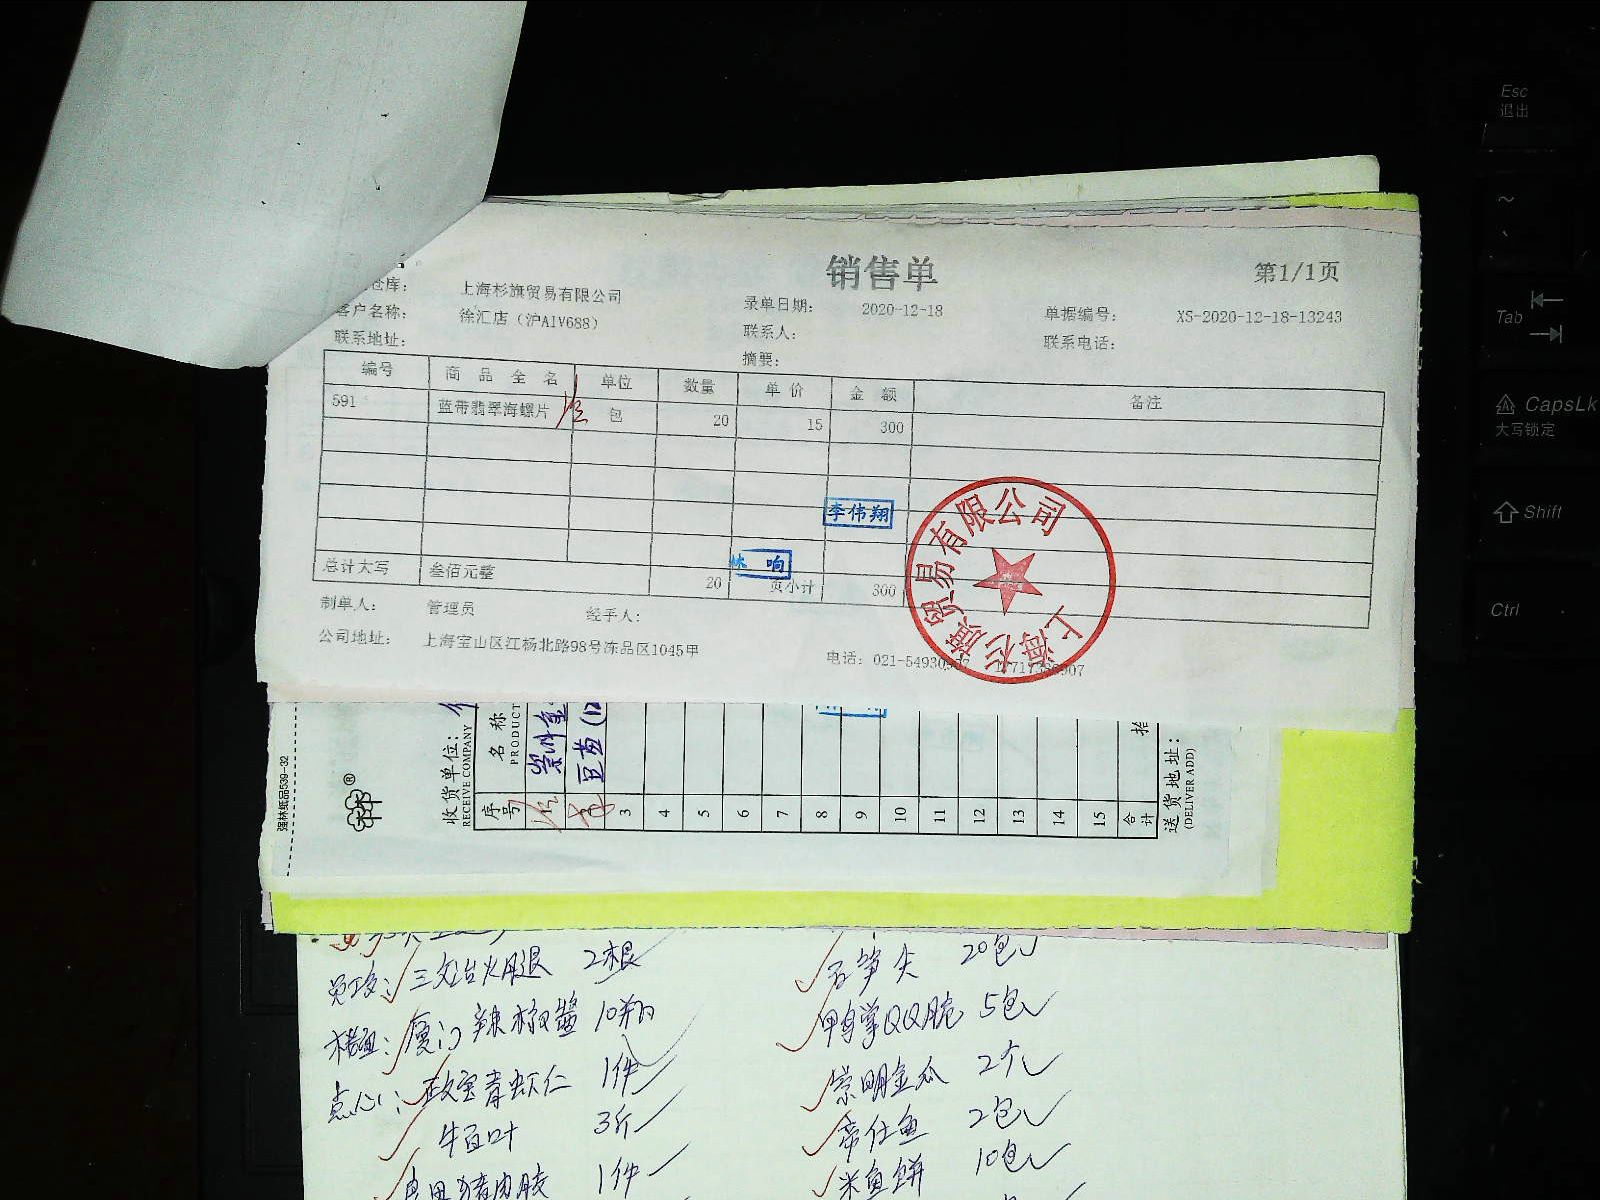 销售单
第1/1页
仓库： 上海杉旗贸易有限公司
客户名称： 徐汇店（沪AIV688）
录单日期： 2020-12-18
单据编号： XS-2020-12-18-13243
联系地址：
联系人：
联系电话：
摘要：
编号 商品全名 单位 数量 单价 金额 备注
591 蓝带翡翠海螺片 包 20 15 300
李伟翔
响
总计大写 叁佰元整 20 页小计 300
上海杉旗贸易有限公司
制单人： 管理员 经手人：
公司地址： 上海宝山区江杨北路98号冻品区1045甲
电话：021-54930
强林纸品539-32
收货单位：
RECEIVE COMPANY
序号
名称
PRODUCT
豆苗
3
4
5
6
7
8
9
10
11
12
13
14
15
合计
送货地址：
(DELIVER ADD)
三文治火腿 2根
厦门辣椒酱 10瓶
点心：
青虾仁 1件
牛百叶 3斤
1件
笋尖 20包
鸭掌QQ脆 5包
崇明金瓜 2个
2包
米鱼饼 10包
Esc
退出
~
Tab
CapsLk
大写锁定
Shift
Ctrl